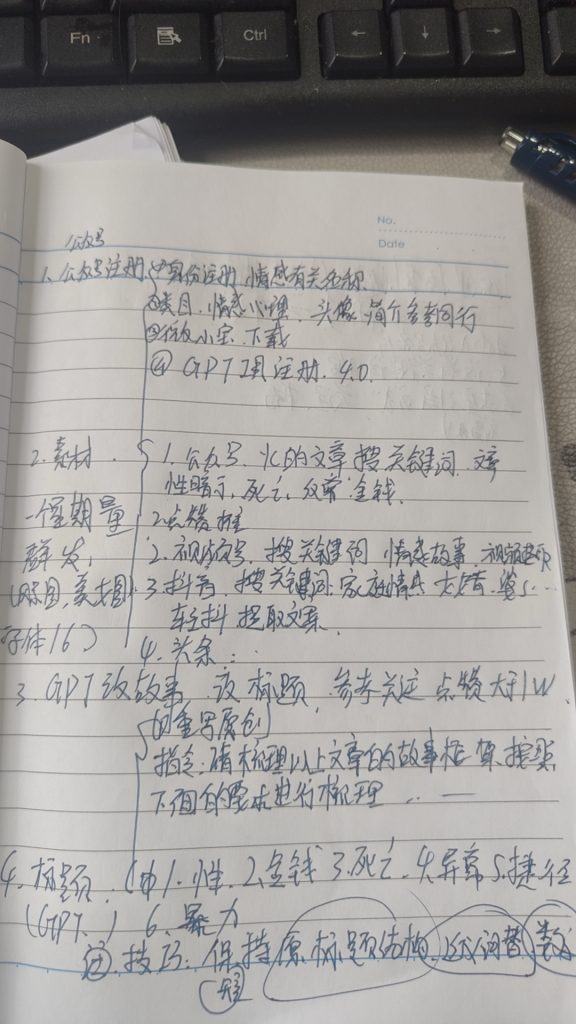 Fn
Ctrl
←
↓
→
No.
Date
公众号
1. 公众号注册 ①身份注册 情感有关名称
②类目. 情感心理. 头像 简介参考同行
③ 小宝 下载
④ GPT 注册. 4.0.
2. 素材 1. 公众号. 的文章 搜关键词
性暗示, 死亡, 金钱.
一个星期量 2 点赞 推
群发, 2. 视频号. 搜关键词 情感故事
(原图, 美女图) 3. 抖音. 搜关键词. 家庭情
字体16) 轻抖 提取文案.
4. 头条 :
3. GPT改故事. 改标题, 参考关注 点赞大于1W
的重写原创
指令: 请梳理以上文章的故事框架. 按照
下面的要求进行梳理 .. —
4. 标题. (中 1. 性. 2. 金钱 3. 死亡. 4. 异常 5. 捷径
(GPT.) 6. 暴力
技巧: 保持原标题结构 词替 数